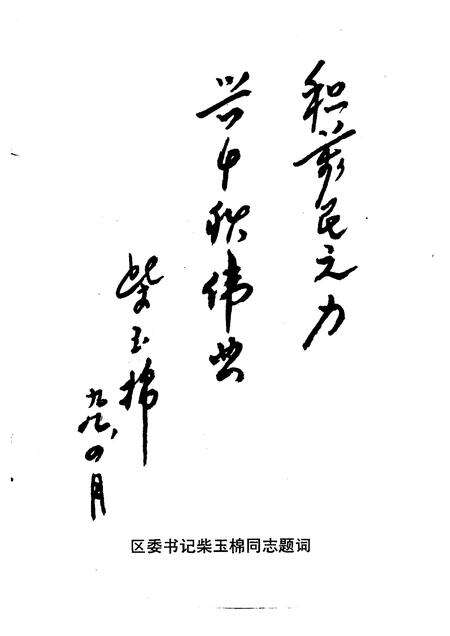 积萬民之力
兴千秋伟业
柴玉棉
九八、四月
区委书记柴玉棉同志题词